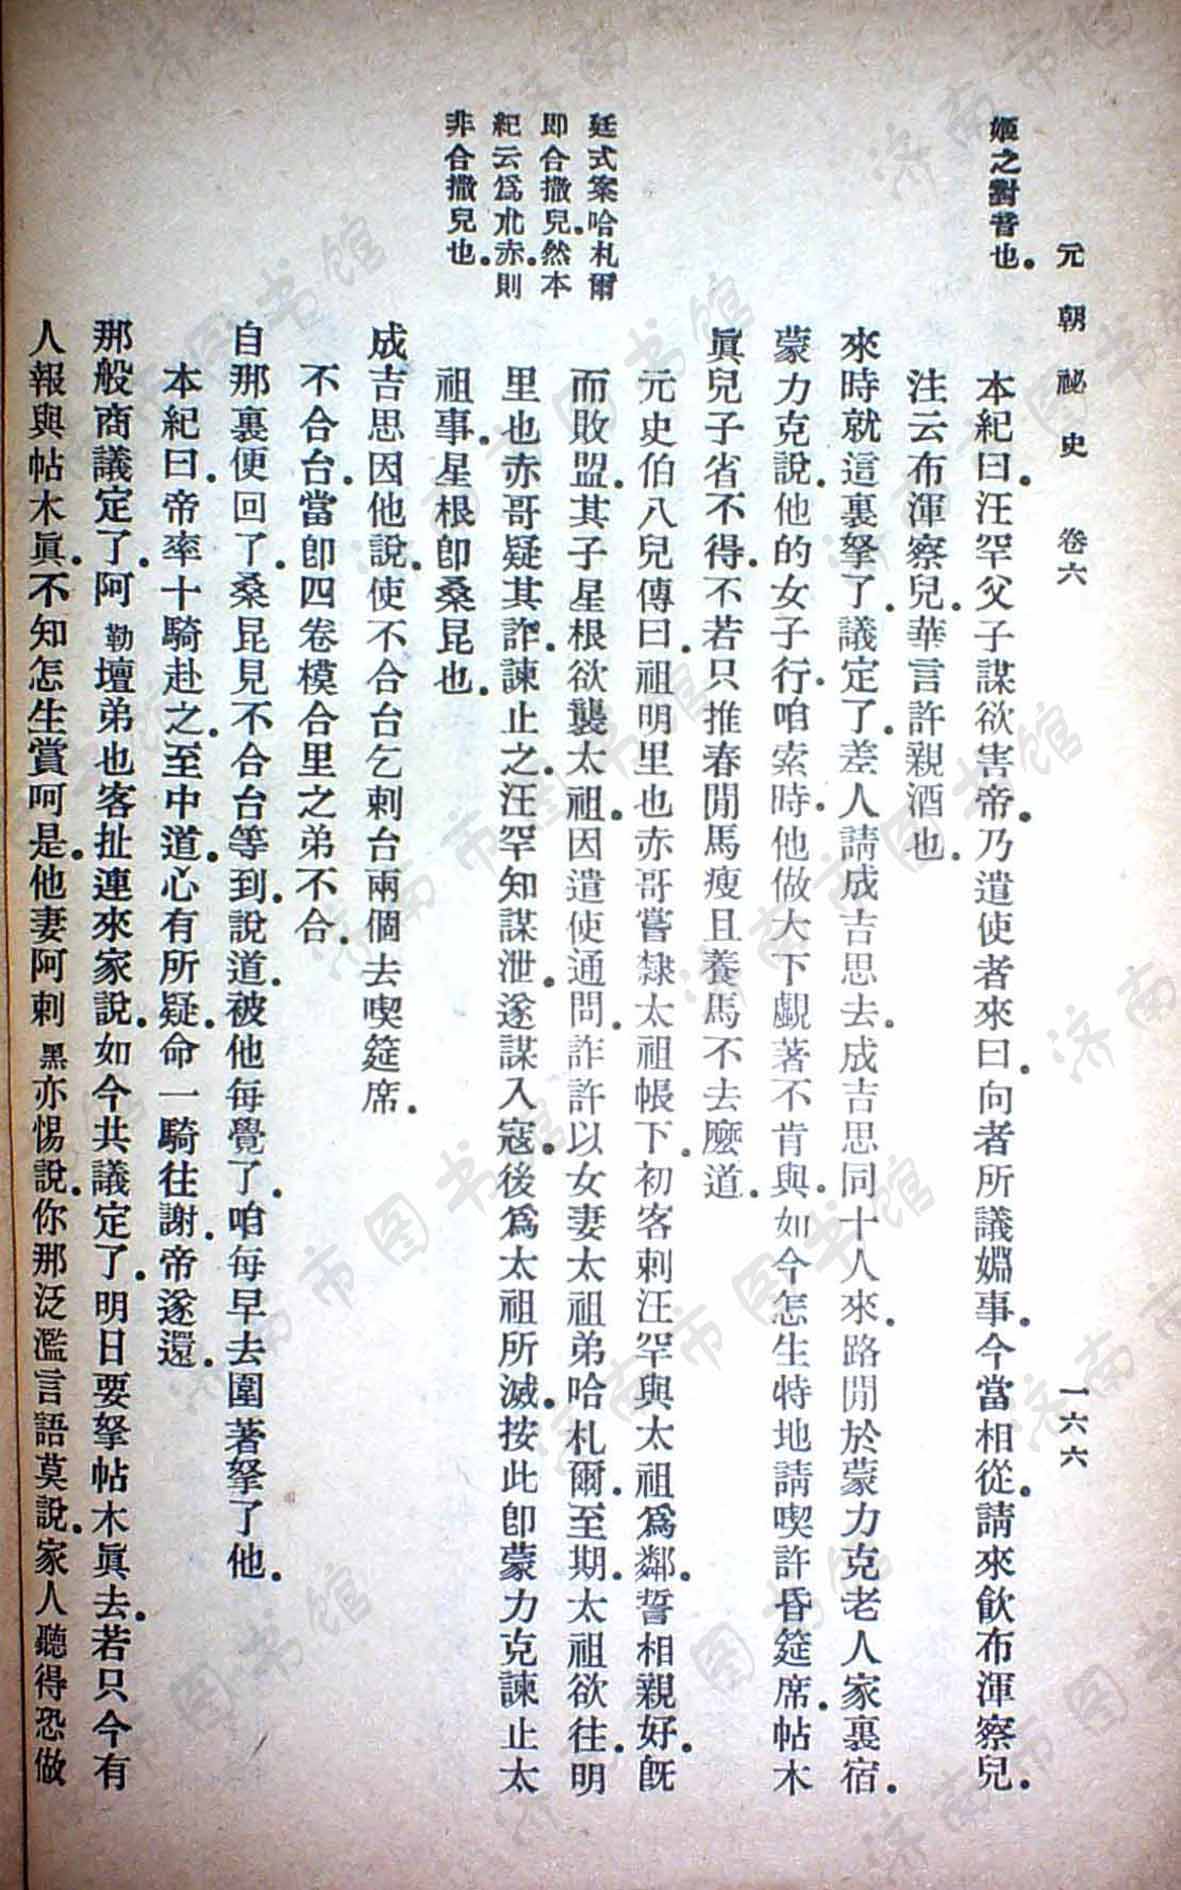 元朝祕史 卷六 一六六
姬之對音也。
廷式案哈札爾
即合撒兒。然本
紀云爲朮赤。則
非合撒兒也。
本紀曰。汪罕父子謀欲害帝。乃遣使者來曰。向者所議婣事。今當相從。請來飮布渾察兒。
注云布渾察兒。華言許親酒也。
來時就這裏拏了。議定了。差人請成吉思去。成吉思同十人來。路閒於蒙力克老人家裏宿。
蒙力克說。他的女子行。咱索時。他做大下覷著不肯與。如今怎生特地請喫許昏筵席。帖木
眞兒子省不得。不若只推春閒馬瘦且養馬不去麽道。
元史伯八兒傳曰。祖明里也赤哥嘗隸太祖帳下。初客剌汪罕與太祖爲鄰。誓相親好。旣
而敗盟。其子星根欲襲太祖。因遣使通問。詐許以女妻太祖弟哈札爾。至期。太祖欲往。明
里也赤哥疑其詐。諫止之。汪罕知謀泄。遂謀入寇。後爲太祖所滅。按此卽蒙力克諫止太
祖事。星根卽桑昆也。
成吉思因他說。使不合台乞剌台兩個去喫筵席。
不合台。當卽四卷模合里之弟不合。
自那裏便回了。桑昆見不合台等到。說道。被他每覺了。咱每早去圍著拏了他。
本紀曰。帝率十騎赴之。至中道。心有所疑。命一騎往謝。帝遂還。
那般商議定了。阿勒壇弟也客扯連來家說。如今共議定了。明日要拏帖木眞去。若只今有
人報與帖木眞。不知怎生賞呵是。他妻阿剌黑亦惕說。你那泛濫言語莫說。家人聽得恐做
济南市图书馆